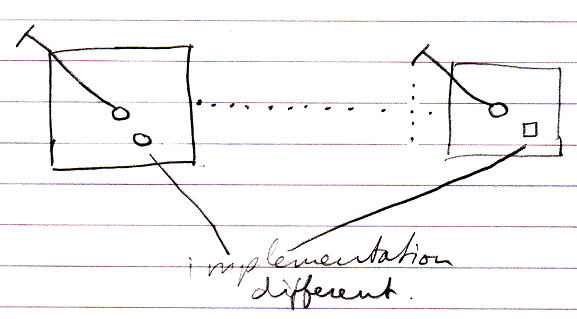 implementation
different.